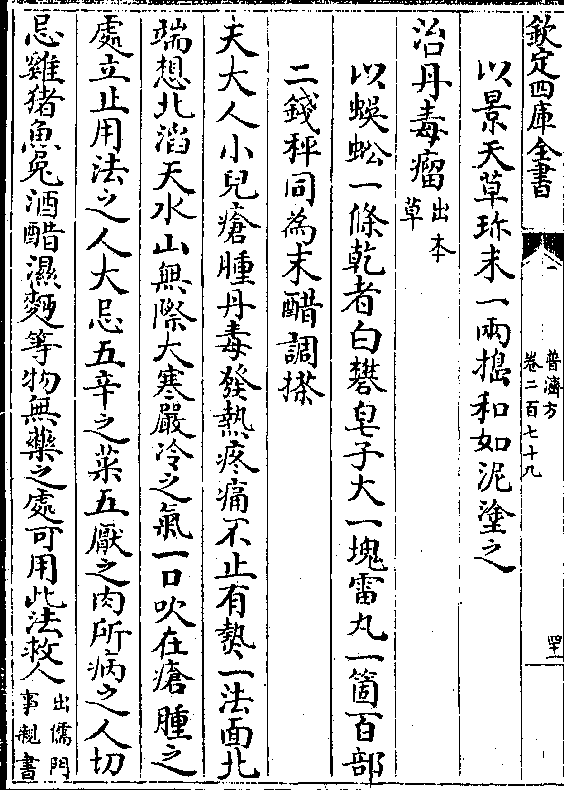 欽定四庫全書
普濟方
卷二百七十九
以景天草珎末一兩搗和如泥塗之
治丹毒瘤出本草
以蜈蚣一條乾者白礬皂子大一塊雷丸一箇百部
二錢秤同為末醋調搽
夫大人小兒瘡腫丹毒發熱疼痛不止有𫝑一法面北
端想北滔天水山無際大寒嚴冷之氣一口吹在瘡腫之
處立止用法之人大忌五辛之菜五厭之肉所病之人切
忌雞猪魚兔酒醋濕麵等物無藥之處可用此法救人出儒門事親書